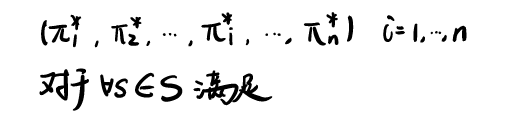 (π₁*, π₂*, ..., πᵢ*, ..., πₙ*) i=1,...,n
对于 ∀s∈S 满足